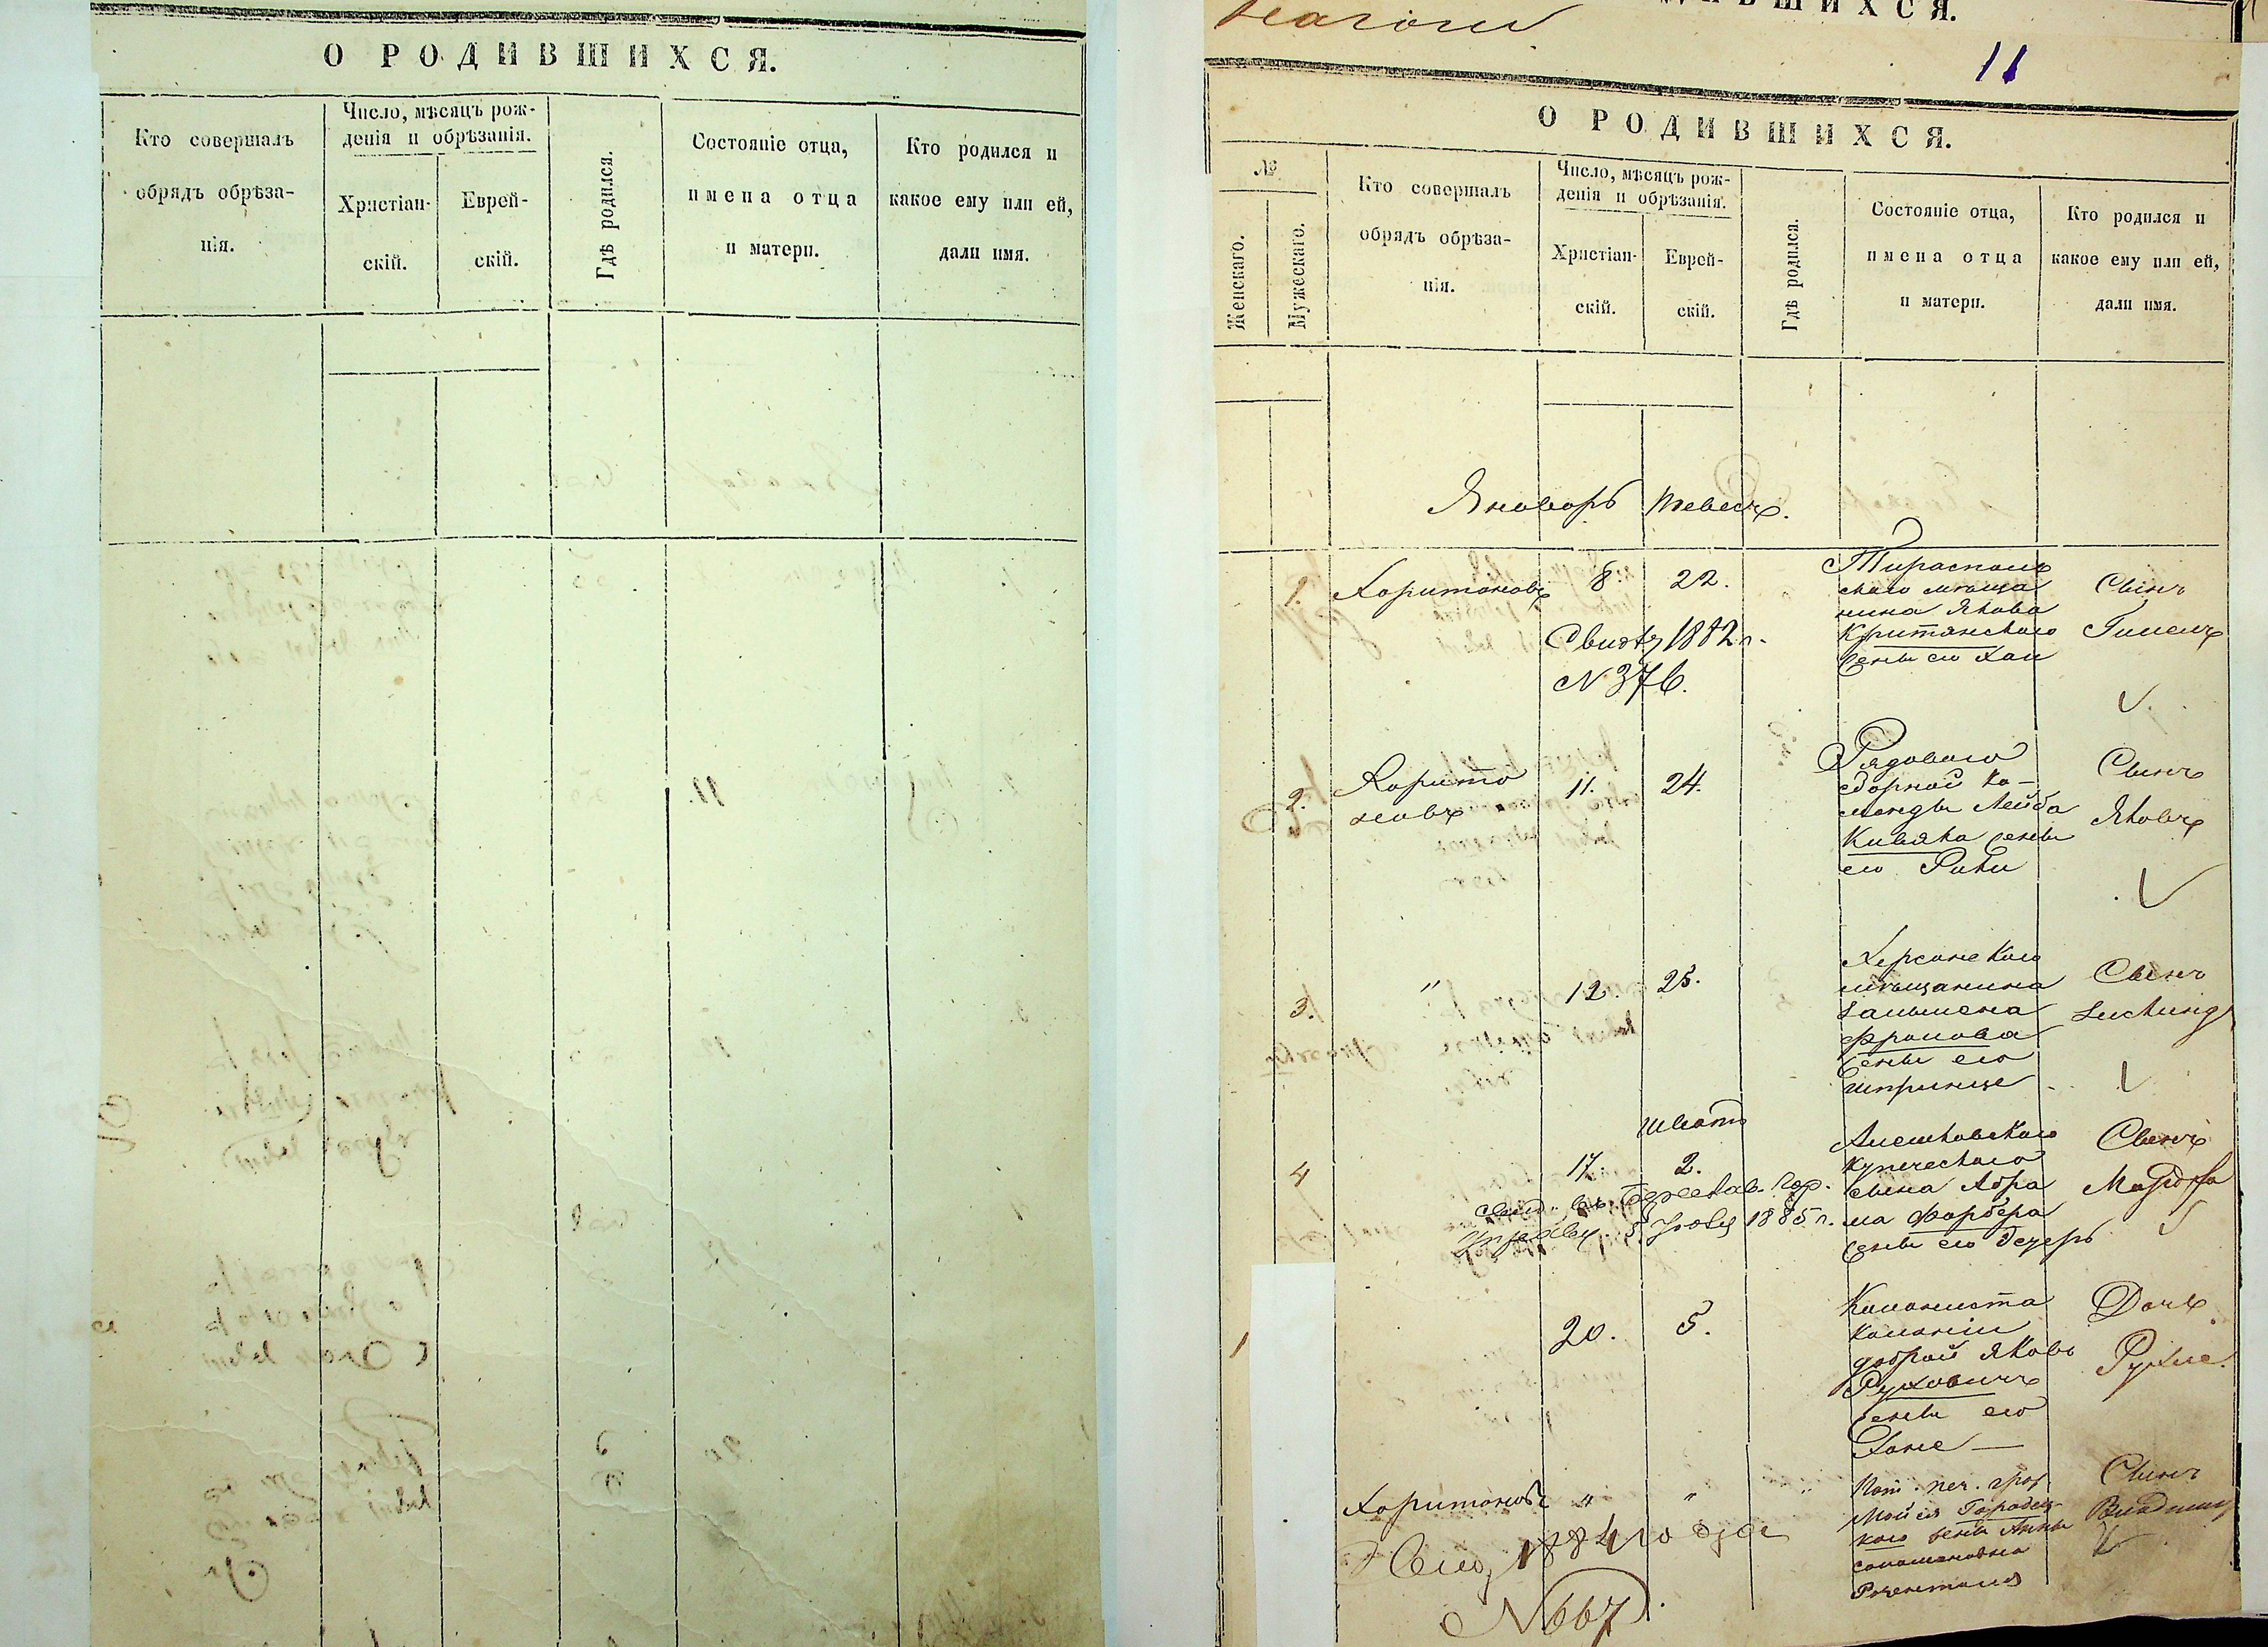 О РОДИВШИХСЯ.
Кто совершалъ
обрядъ обрѣза-
нія.
Число, мѣсяцъ рож-
денія и обрѣзанія.
Христіан-
скій.
Еврей-
скій.
Гдѣ родился.
Состояніе отца,
имена отца
и матери.
Кто родился и
какое ему или ей,
дали имя.
11
О РОДИВШИХСЯ.
№
Женскаго.
Мужескаго.
Кто совершалъ
обрядъ обрѣза-
нія.
Число, мѣсяцъ рож-
денія и обрѣзанія.
Христіан-
скій.
Еврей-
скій.
Гдѣ родился.
Состояніе отца,
имена отца
и матери.
Кто родился и
какое ему или ей,
дали имя.
Январь Тевесъ.
1.
Харитоновъ
8.
22.
Свид. 1882 г.
N 376.
Тирасполь
скаго мѣща
нина Якова
Критянскаго
жены его Хаи
Сынъ
Гилель
2.
Харито
новъ
11.
24.
Рядоваго
сборной ко-
манды Лейба
Кивяка жены
его
Сынъ
Яковъ
3.
"
12.
25.
Херсонскаго
мѣщанина
Залмена
Фролова
жены его
Шпринце
Сынъ
4
Шватъ
17.
2.
свид. въ Гор.
5 1885 г.
Алешковскаго
купеческаго
сына Абра
ма Фарбера
жены его
Сынъ
1
20.
5.
Колониста
колоніи
доброй Яковъ
Руховичъ
жены его
Хане —
Дочь
Рухле.
Харитоновъ
"
"
"
1884 года
N 667.
Пот. поч. граж.
Мойсея Городец-
каго жены Анны
Соломоновна
Розенталя
Сынъ
Владимиръ